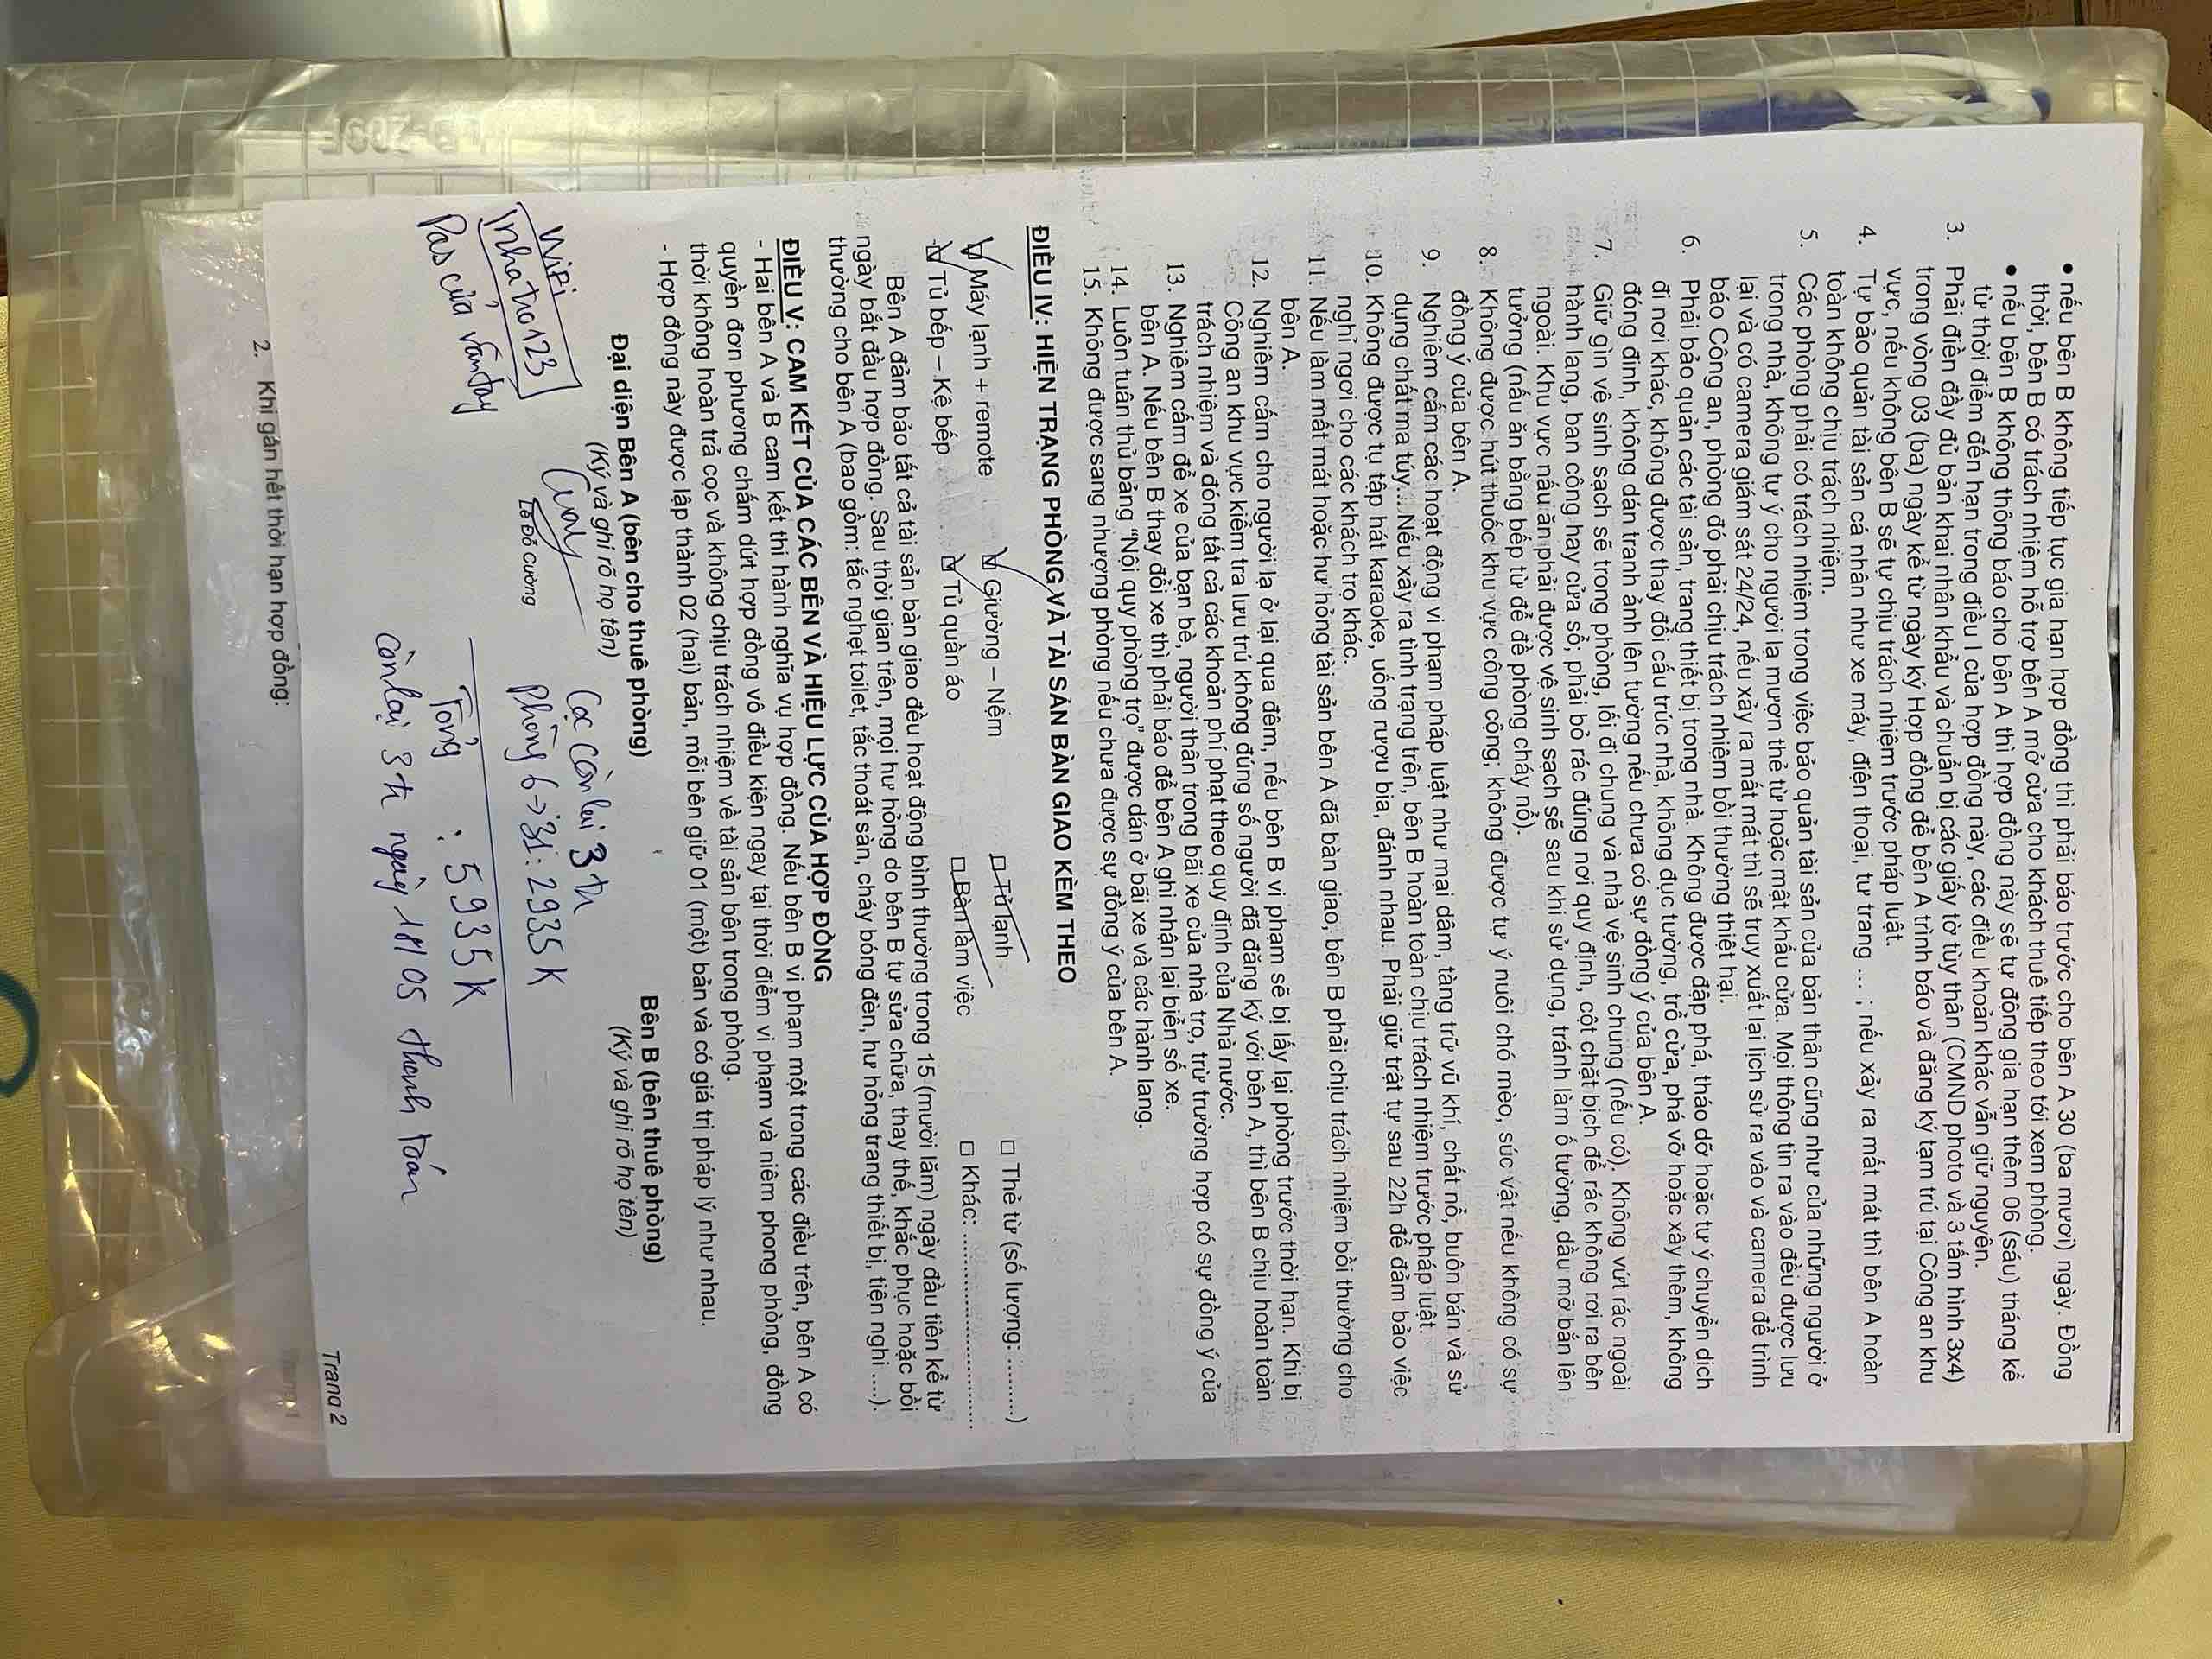 • nếu bên B không tiếp tục gia hạn hợp đồng thì phải báo trước cho bên A 30 (ba mươi) ngày. Đồng
thời, bên B có trách nhiệm hỗ trợ bên A mở cửa cho khách thuê tiếp theo tới xem phòng.
• nếu bên B không thông báo cho bên A thì hợp đồng này sẽ tự động gia hạn thêm 06 (sáu) tháng kể
từ thời điểm đến hạn trong điều I của hợp đồng này, các điều khoản khác vẫn giữ nguyên.
3. Phải điền đầy đủ bản khai nhân khẩu và chuẩn bị các giấy tờ tùy thân (CMND photo và 3 tấm hình 3x4)
trong vòng 03 (ba) ngày kể từ ngày ký Hợp đồng để bên A trình báo và đăng ký tạm trú tại Công an khu
vực, nếu không bên B sẽ tự chịu trách nhiệm trước pháp luật.
4. Tự bảo quản tài sản cá nhân như xe máy, điện thoại, tư trang ... ; nếu xảy ra mất mát thì bên A hoàn
toàn không chịu trách nhiệm.
5. Các phòng phải có trách nhiệm trong việc bảo quản tài sản của bản thân cũng như của những người ở
trong nhà, không tự ý cho người lạ mượn thẻ từ hoặc mật khẩu cửa. Mọi thông tin ra vào đều được lưu
lại và có camera giám sát 24/24, nếu xảy ra mất mát thì sẽ truy xuất lại lịch sử ra vào và camera để trình
báo Công an, phòng đó phải chịu trách nhiệm bồi thường thiệt hại.
6. Phải bảo quản các tài sản, trang thiết bị trong nhà. Không được đập phá, tháo dỡ hoặc tự ý chuyển dịch
đi nơi khác, không được thay đổi cấu trúc nhà, không đục tường, trổ cửa, phá vỡ hoặc xây thêm, không
đóng đinh, không dán tranh ảnh lên tường nếu chưa có sự đồng ý của bên A.
7. Giữ gìn vệ sinh sạch sẽ trong phòng, lối đi chung và nhà vệ sinh chung (nếu có). Không vứt rác ngoài
hành lang, ban công hay cửa sổ; phải bỏ rác đúng nơi quy định, cột chặt bịch để rác không rơi ra bên
ngoài. Khu vực nấu ăn phải được vệ sinh sạch sẽ sau khi sử dụng, tránh làm ố tường, dầu mỡ bắn lên
tường (nấu ăn bằng bếp từ để đề phòng cháy nổ).
8. Không được hút thuốc khu vực công cộng; không được tự ý nuôi chó mèo, súc vật nếu không có sự
đồng ý của bên A.
9. Nghiêm cấm các hoạt động vi phạm pháp luật như mại dâm, tàng trữ vũ khí, chất nổ, buôn bán và sử
dụng chất ma túy....Nếu xảy ra tình trạng trên, bên B hoàn toàn chịu trách nhiệm trước pháp luật.
10. Không được tụ tập hát karaoke, uống rượu bia, đánh nhau. Phải giữ trật tự sau 22h để đảm bảo việc
nghỉ ngơi cho các khách trọ khác.
11. Nếu làm mất mát hoặc hư hỏng tài sản bên A đã bàn giao, bên B phải chịu trách nhiệm bồi thường cho
bên A.
12. Nghiêm cấm cho người lạ ở lại qua đêm, nếu bên B vi phạm sẽ bị lấy lại phòng trước thời hạn. Khi bị
Công an khu vực kiểm tra lưu trú không đúng số người đã đăng ký với bên A, thì bên B chịu hoàn toàn
trách nhiệm và đóng tất cả các khoản phí phạt theo quy định của Nhà nước.
13. Nghiêm cấm để xe của bạn bè, người thân trong bãi xe của nhà trọ, trừ trường hợp có sự đồng ý của
bên A. Nếu bên B thay đổi xe thì phải báo để bên A ghi nhận lại biển số xe.
14. Luôn tuân thủ bảng “Nội quy phòng trọ” được dán ở bãi xe và các hành lang.
15. Không được sang nhượng phòng nếu chưa được sự đồng ý của bên A.
ĐIỀU IV: HIỆN TRẠNG PHÒNG VÀ TÀI SẢN BÀN GIAO KÈM THEO
☑ Máy lạnh + remote ☑ Giường – Nệm □ Tủ lạnh □ Thẻ từ (số lượng: .........)
☑ Tủ bếp – Kệ bếp ☑ Tủ quần áo □ Bàn làm việc □ Khác: ............................
Bên A đảm bảo tất cả tài sản bàn giao đều hoạt động bình thường trong 15 (mười lăm) ngày đầu tiên kể từ
ngày bắt đầu hợp đồng. Sau thời gian trên, mọi hư hỏng do bên B tự sửa chữa, thay thế, khắc phục hoặc bồi
thường cho bên A (bao gồm: tắc nghẹt toilet, tắc thoát sàn, cháy bóng đèn, hư hỏng trang thiết bị, tiện nghi ....).
ĐIỀU V: CAM KẾT CỦA CÁC BÊN VÀ HIỆU LỰC CỦA HỢP ĐỒNG
- Hai bên A và B cam kết thi hành nghĩa vụ hợp đồng. Nếu bên B vi phạm một trong các điều trên, bên A có
quyền đơn phương chấm dứt hợp đồng vô điều kiện ngay tại thời điểm vi phạm và niêm phong phòng, đồng
thời không hoàn trả cọc và không chịu trách nhiệm về tài sản bên trong phòng.
- Hợp đồng này được lập thành 02 (hai) bản, mỗi bên giữ 01 (một) bản và có giá trị pháp lý như nhau.
Đại diện Bên A (bên cho thuê phòng) Bên B (bên thuê phòng)
(Ký và ghi rõ họ tên) (Ký và ghi rõ họ tên)
Lê Đỗ Cường
Wifi
nhatro123
Pas cửa vân tay
Cọc còn lại 3tr
Phòng 6->31: 2935K
Tổng : 5935K
Còn lại 3tr ngày 18/05 thanh toán
Trang 2
2. Khi gần hết thời hạn hợp đồng:
Trang 1